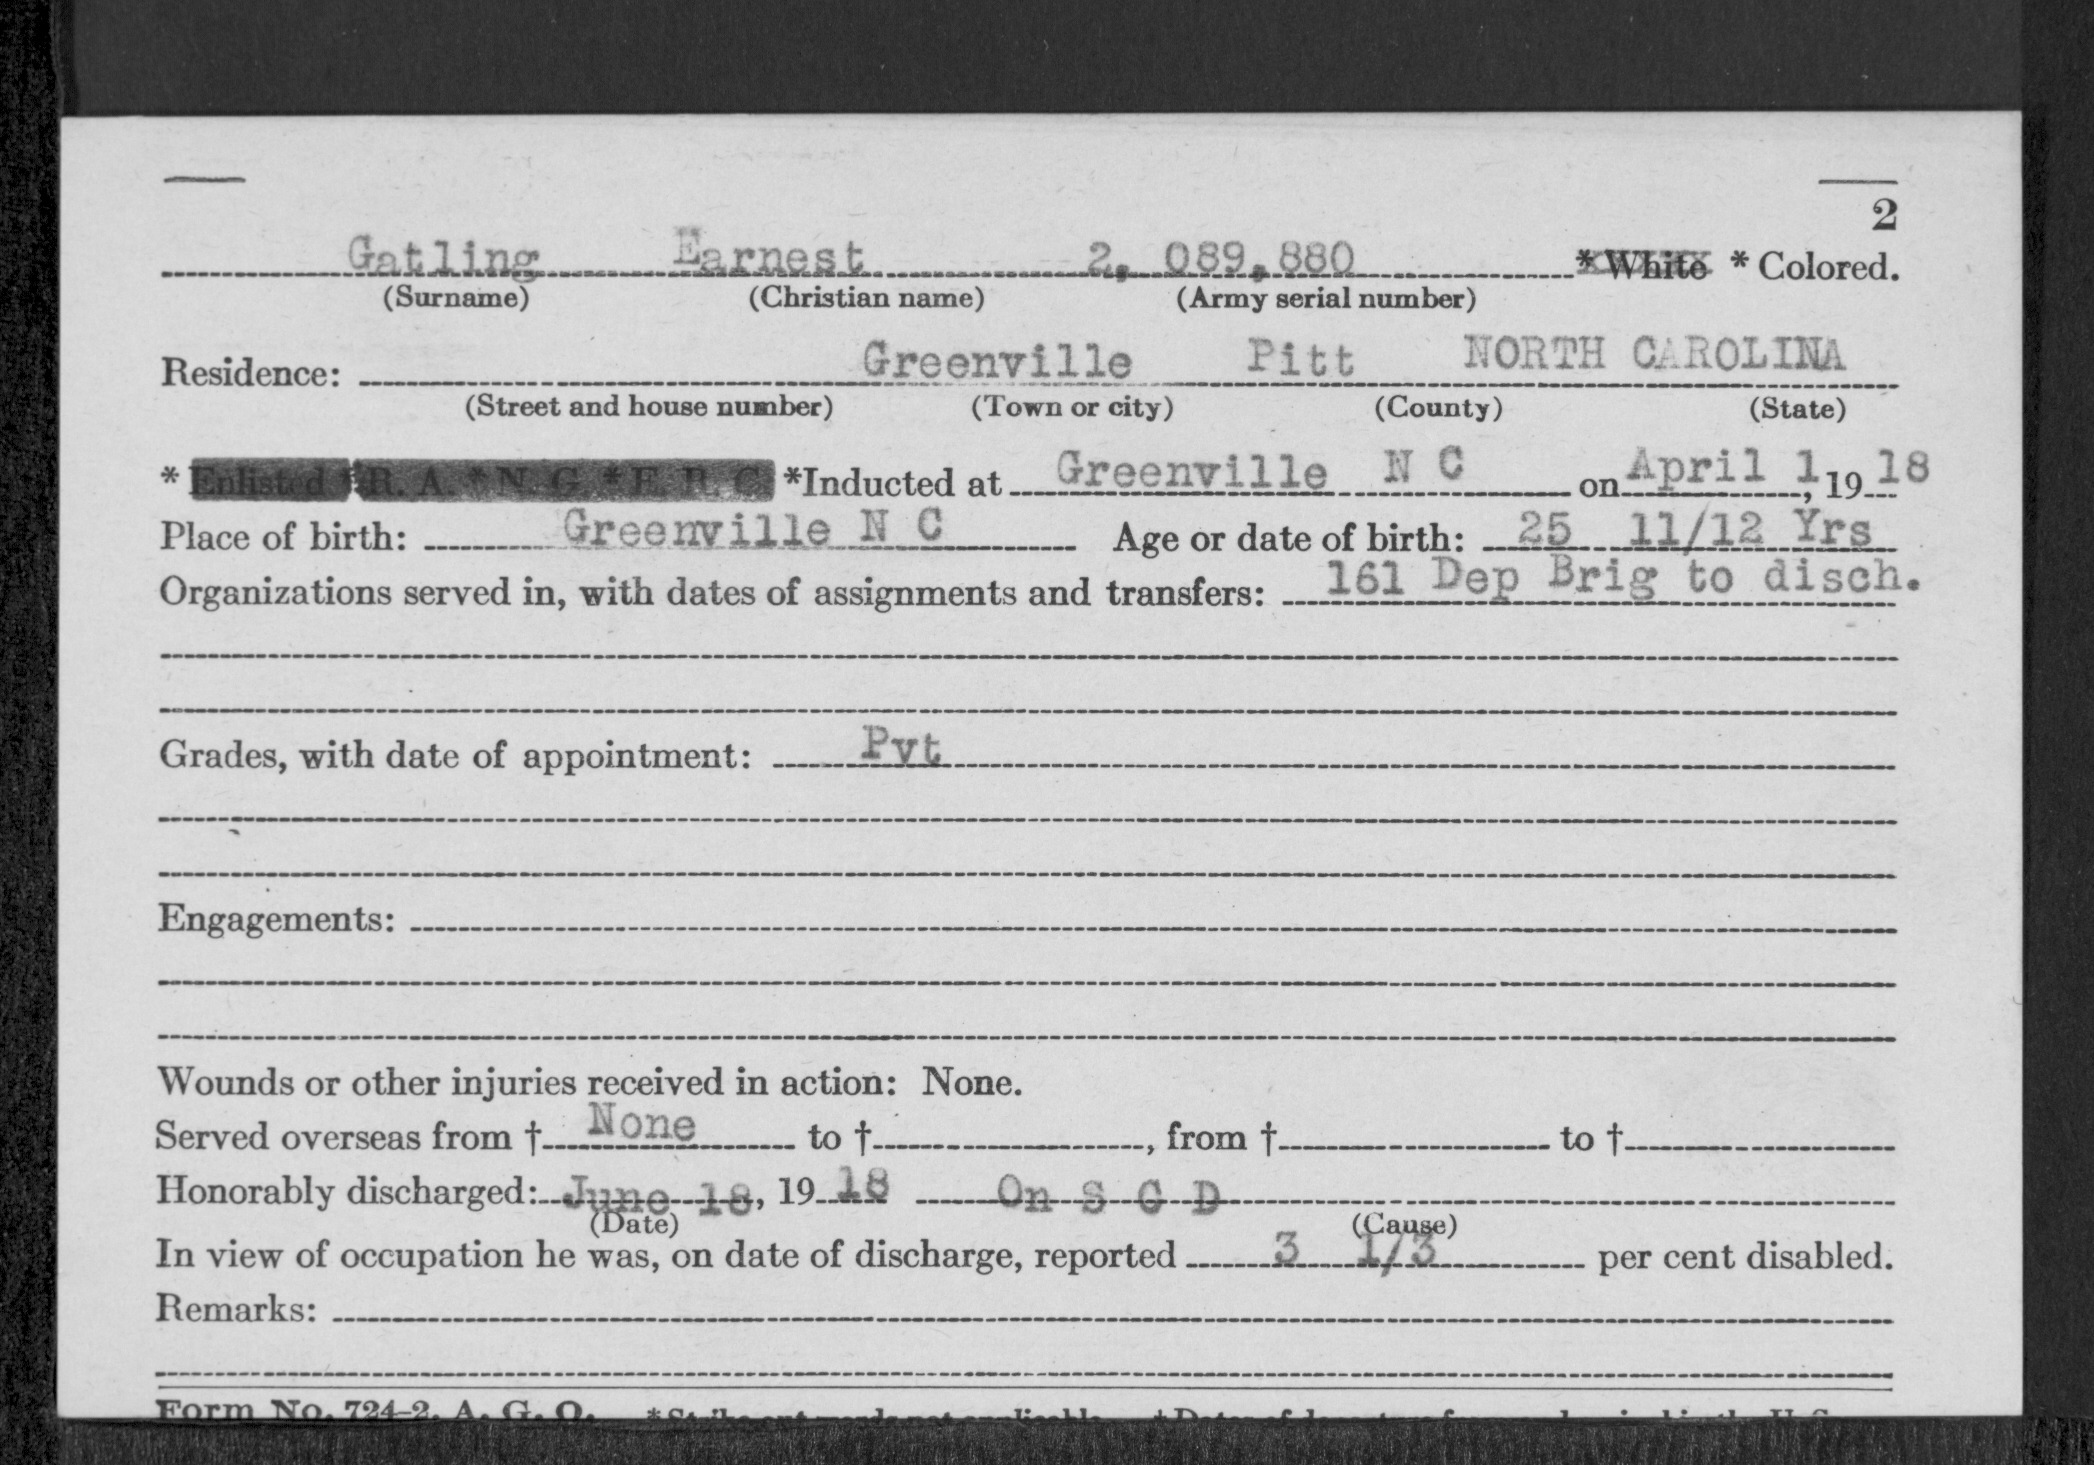 2
Gatling Earnest 2, 089,880 * White * Colored.
(Surname) (Christian name) (Army serial number)
Residence: Greenville Pitt NORTH CAROLINA
(Street and house number) (Town or city) (County) (State)
* Enlisted * R. A. * N. G. * E. R. C. *Inducted at Greenville N C on April 1, 19 18
Place of birth: Greenville N C Age or date of birth: 25 11/12 Yrs
Organizations served in, with dates of assignments and transfers: 161 Dep Brig to disch.
Grades, with date of appointment: Pvt
Engagements:
Wounds or other injuries received in action: None.
Served overseas from † None to †, from † to †
Honorably discharged: June 18, 19 18 On S C D
(Date) (Cause)
In view of occupation he was, on date of discharge, reported 3 1/3 per cent disabled.
Remarks:
Form No. 724-2, A. G. O.